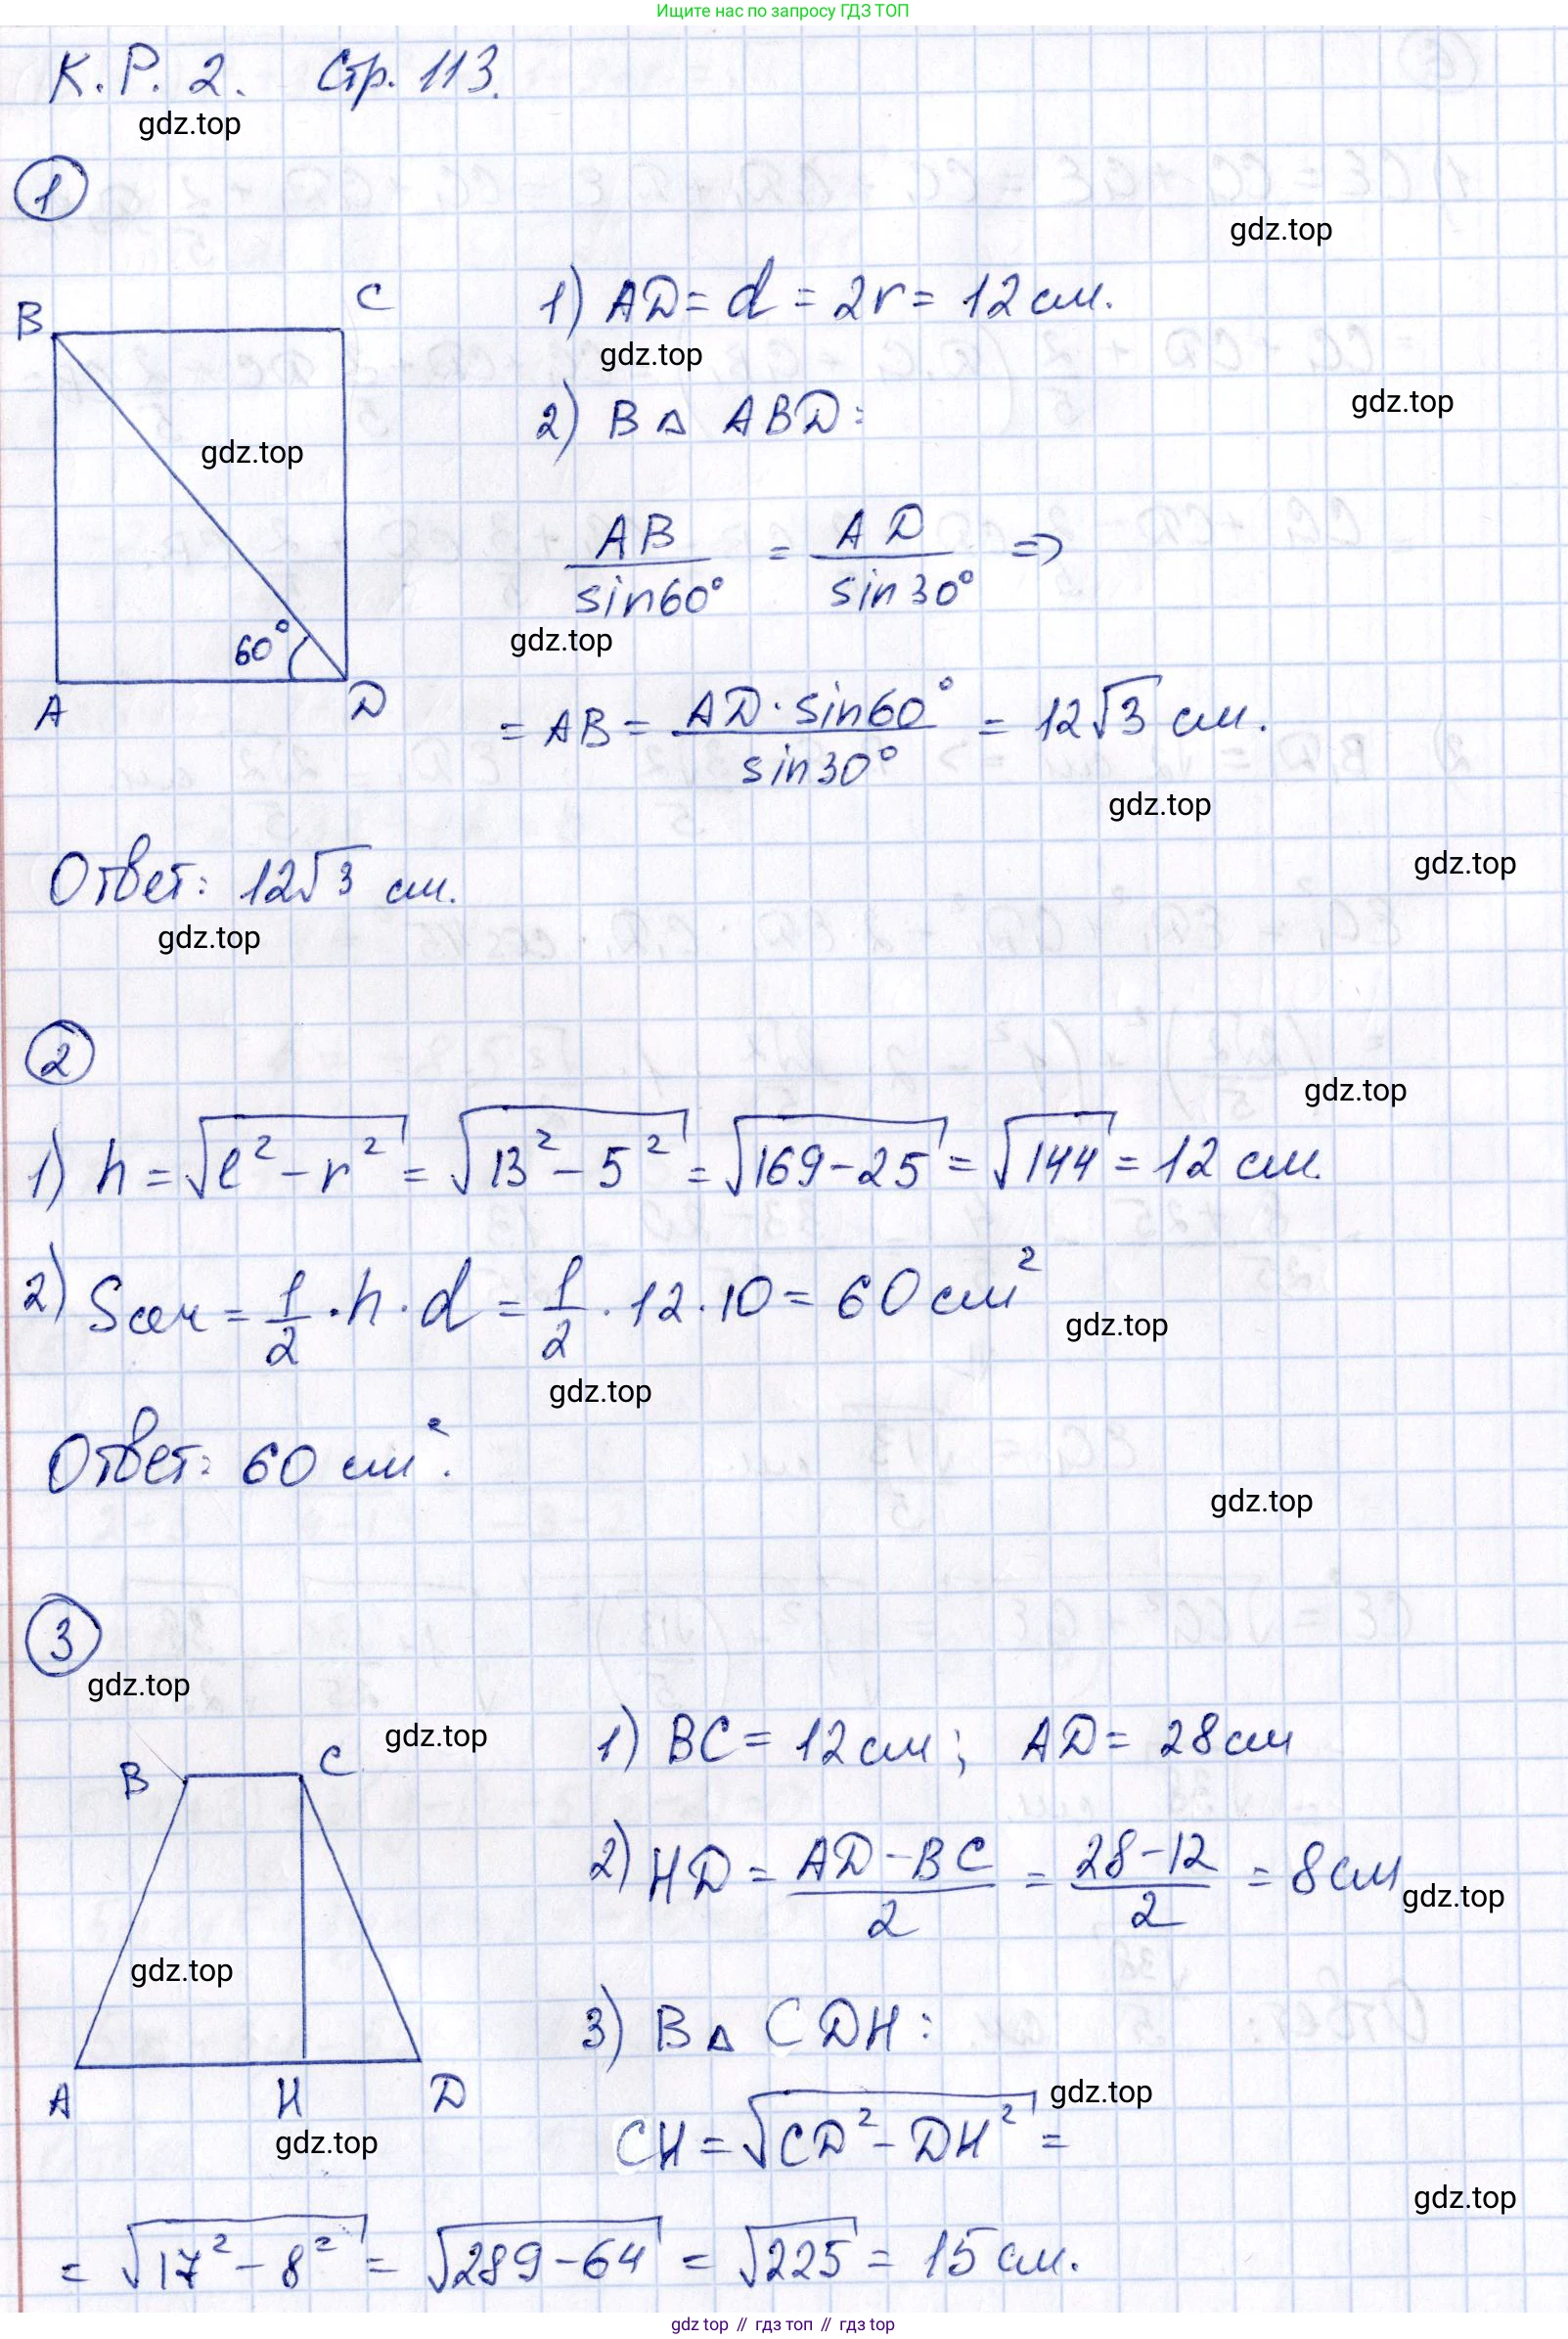 Ищите нас по запросу ГДЗ ТОП
К.Р. 2. Стр. 113.
gdz.top
1
gdz.top
B C
1) AD = d = 2r = 12 см.
gdz.top
2) В △ ABD:
gdz.top
gdz.top
AB/sin60° = AD/sin30° =>
60°
gdz.top
A D
= AB = AD · sin60°/sin30° = 12√3 см.
gdz.top
Ответ: 12√3 см.
gdz.top
gdz.top
2
gdz.top
1) h = √(l² − r²) = √(13² − 5²) = √(169 − 25) = √144 = 12 см.
2) Sсеч = 1/2 · h · d = 1/2 · 12 · 10 = 60 см²
gdz.top
gdz.top
Ответ: 60 см².
gdz.top
3
gdz.top
gdz.top
B C
1) BC = 12 см; AD = 28 см
2) HD = (AD − BC)/2 = (28 − 12)/2 = 8 см
gdz.top
gdz.top
3) В △ CDH:
A H D
gdz.top
gdz.top
CH = √(CD² − DH²) =
gdz.top
= √(17² − 8²) = √(289 − 64) = √225 = 15 см.
gdz top // гдз топ // гдз top